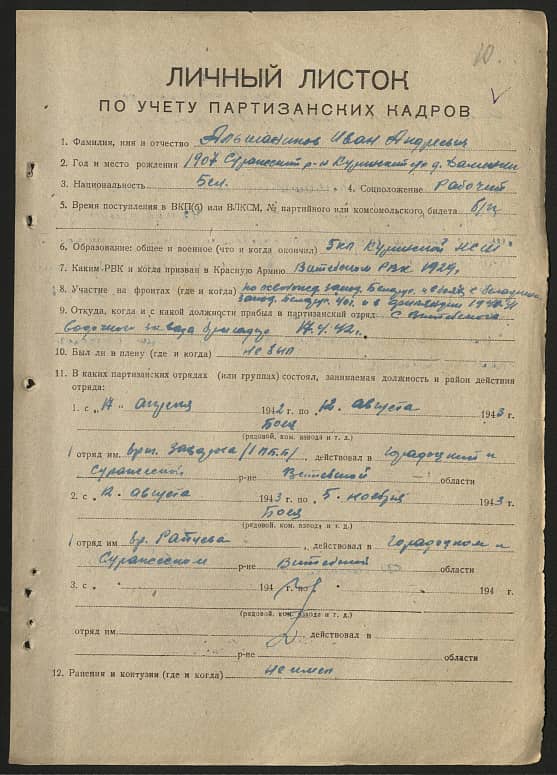 10.
ЛИЧНЫЙ ЛИСТОК
ПО УЧЕТУ ПАРТИЗАНСКИХ КАДРОВ
1. Фамилия, имя и отчество Иван Андреевич
2. Год и место рождения 1907 Суражский р-н д.
3. Национальность Бел. 4. Соцположение Рабочий
5. Время поступления в ВКП(б) или ВЛКСМ, № партийного или комсомольского билета б/п
6. Образование: общее и военное (что и когда окончил) 5кл НСШ
7. Каким РВК и когда призван в Красную Армию Витебском РВК 1929г
8. Участие на фронтах (где и когда) по освобожд. запад. Белорус.
запад. Белорус. 40г. и в Финляндии
9. Откуда, когда и с какой должности прибыл в партизанский отряд: С Витебского
завода 17.4.42г.
10. Был ли в плену (где и когда) не был
11. В каких партизанских отрядах (или группах) состоял, занимаемая должность и район действия
отряда:
1. с „17 „ апреля 1942 г. по 12. августа 1943 г.
Боец
(рядовой. ком. взвода и т. д.)
1 отряд им. , действовал в Городокский и
Суражский р-не Витебской области
2. с „12. августа 1943 г. по 5. ноября 1943 г.
Боец
(рядовой. ком. взвода и т. д.)
1 отряд им. бр. Райцева , действовал в Городокском и
Суражском р-не Витебской области
3. с „ 194 г. по 194 г.
(рядовой. ком. взвода и т. д.)
отряд им. действовал в
р-не области
12. Ранения и контузии (где и когда) не имел